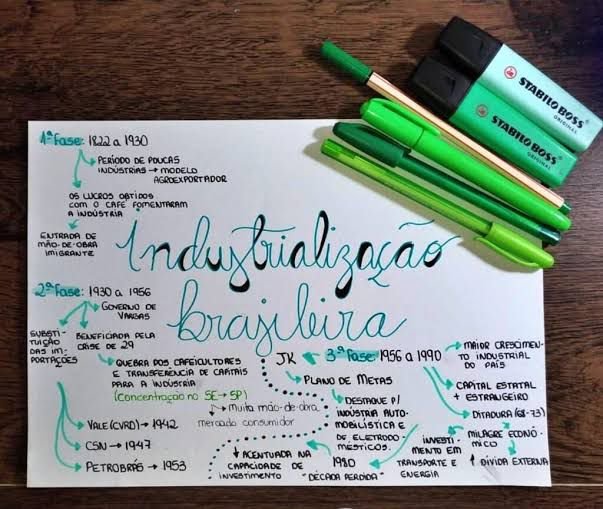 1ª Fase: 1822 a 1930
PERÍODO DE POUCAS
INDÚSTRIAS → MODELO
AGROEXPORTADOR
OS LUCROS OBTIDOS
COM O CAFÉ FOMENTARAM
A INDÚSTRIA
ENTRADA DE
MÃO-DE-OBRA
IMIGRANTE
Industrialização
brasileira
2ª Fase: 1930 a 1956
GOVERNO DE
VARGAS
SUBSTI-
TUIÇÃO
DAS IM-
PORTAÇÕES
BENEFICIADA PELA
CRISE DE 29
QUEBRA DOS CAFEICULTORES
E TRANSFERÊNCIA DE CAPITAIS
PARA A INDÚSTRIA
(CONCENTRAÇÃO NO SE → SP)
→ Muita mão-de-obra
mercado consumidor
VALE (CVRD) → 1942
CSN → 1947
PETROBRÁS → 1953
JK
3ª Fase: 1956 a 1990
PLANO DE METAS
DESTAQUE P/
INDÚSTRIA AUTO-
MOBILÍSTICA E
DE ELETRODO-
MÉSTICOS.
MAIOR CRESCIMEN-
TO INDUSTRIAL
DO PAÍS
CAPITAL ESTATAL
+ ESTRANGEIRO
DITADURA (68-73)
MILAGRE ECONÔ-
MICO
↑ DÍVIDA EXTERNA
INVESTI-
MENTO EM
TRANSPORTE E
ENERGIA
1980
"DÉCADA PERDIDA"
↓ ACENTUADA NA
CAPACIDADE DE
INVESTIMENTO
STABILO BOSS
ORIGINAL
STABILO BOSS
ORIGINAL